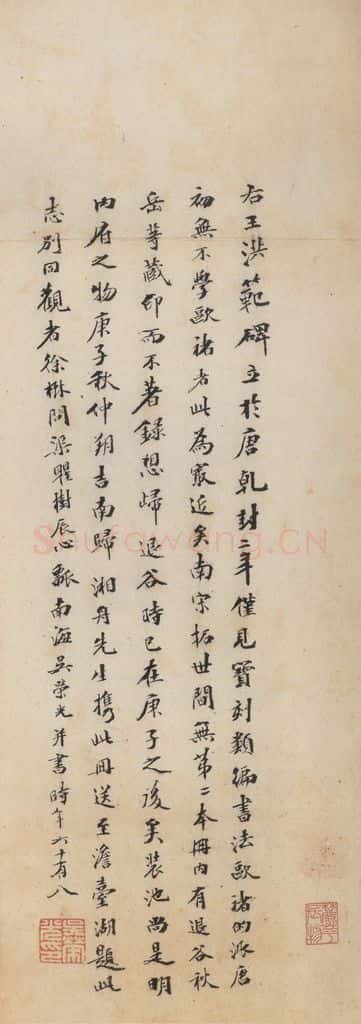 右王洪範碑立於唐乹封二年僅見寶刻類編書法歐褚的派唐
初無不學歐褚者此為冣近矣南宋拓世間無第二本冊內有退谷秋
岳等藏印而不著錄想歸退谷時已在庚子之後矣裝池尚是明
內府之物庚子秋仲朔吉南歸湘舟先生携此冊送至澹臺湖題此
志別同觀者徐楙問渠瞿樹辰心 南海吳榮光并書時年六十有八
Shufawang.CN